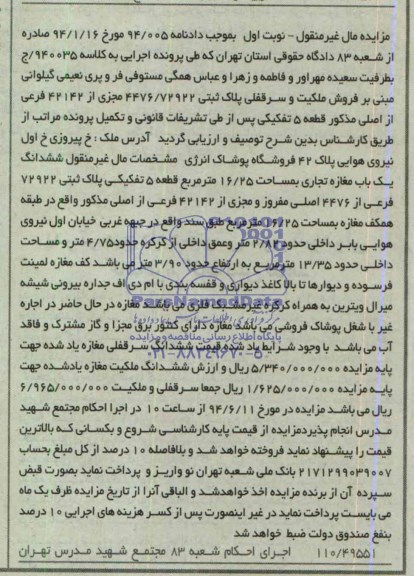 مزایده مال غیرمنقول - نوبت اول بموجب دادنامه ۹۴/۰۰۵ مورخ ۹۴/۱/۱۶ صادره
از شعبه ۸۳ دادگاه حقوقی استان تهران که طی پرونده اجرایی به کلاسه ۹۴۰۰۳۵/ج
بطرفیت سعیده مهرآور و فاطمه و زهرا و عباس همگی مستوفی فر و پری نعیمی گیلوانی
مبنی بر فروش ملکیت و سرقفلی پلاک ثبتی ۴۴۷۶/۷۲۹۲۲ مجزی از ۴۲۱۴۲ فرعی
از اصلی مذکور قطعه ۵ تفکیکی پس از طی تشریفات قانونی و تکمیل پرونده مراتب از
طریق کارشناس بدین شرح توصیف و ارزیابی گردید آدرس ملک : خ پیروزی خ اول
نیروی هوایی پلاک ۴۲ فروشگاه پوشاک انرژی مشخصات مال غیرمنقول ششدانگ
یک باب مغازه تجاری بمساحت ۱۶/۲۵ مترمربع قطعه ۵ تفکیکی پلاک ثبتی ۷۲۹۲۲
فرعی از ۴۴۷۶ اصلی مفروز و مجزی از ۴۲۱۴۲ فرعی از اصلی مذکور واقع در طبقه
همکف مغازه بمساحت ۱۶/۲۵ مترمربع طبق سند واقع در جبهه غربی خیابان اول نیروی
هوایی بابر داخلی حدود ۲/۸۲ متر وعمق داخلی از کرکره حدود۴/۷۵ متر و مساحت
داخلی حدود ۱۳/۳۵ مترمربع به ارتفاع حدود ۳/۹۰ متر می باشد کف مغازه لمینت
فرسوده و دیوارها تا بالا کاغذ دیواری و قفسه بندی با ام دی اف جداره بیرونی شیشه
میرال ویترین به همراه کرکره غیرمشبک فلزی می باشد مغازه در حال حاضر در اجاره
غیر با شغل پوشاک فروشی می باشد مغازه دارای کنتور برق مجزا و گاز مشترک و فاقد
آب می باشد با وجود شرایط یاد شده قیمت ششدانگ سرقفلی مغازه یاد شده جهت
پایه مزایده ۵/۳۴۰/۰۰۰/۰۰۰ ریال و ارزش ششدانگ ملکیت مغازه یادشده جهت
پایه مزایده ۱/۶۲۵/۰۰۰/۰۰۰ ریال جمعا سرقفلی و ملکیت ۶/۹۶۵/۰۰۰/۰۰۰
ریال می باشد مزایده در مورخ ۹۴/۶/۱۱ از ساعت ۱۰ در اجرا احکام مجتمع شهید
مدرس انجام پذیردمزایده از قیمت پایه کارشناسی شروع و بکسانی که بالاترین
قیمت را پیشنهاد نماید فروخته خواهد شد و بلافاصله ۱۰ درصد از کل مبلغ بحساب
۲۱۷۱۲۹۹۰۳۹۰۰۷ بانک ملی شعبه تهران نو واریز و پرداخت نماید بصورت قبض
سپرده آن از برنده مزایده اخذ خواهدشد و الباقی آنرا از تاریخ مزایده ظرف یک ماه
می بایست پرداخت نماید در غیر اینصورت پس از کسر هزینه های اجرایی ۱۰ درصد
بنفع صندوق دولت ضبط خواهد شد
۱۱۰/۴۹۵۵۱ اجرای احکام شعبه ۸۳ مجتمع شهید مدرس تهران
پایگاه اطلاع رسانی مناقصه و مزایده
۰۲۱-۸۸۳۴۹۶۷۰-۵